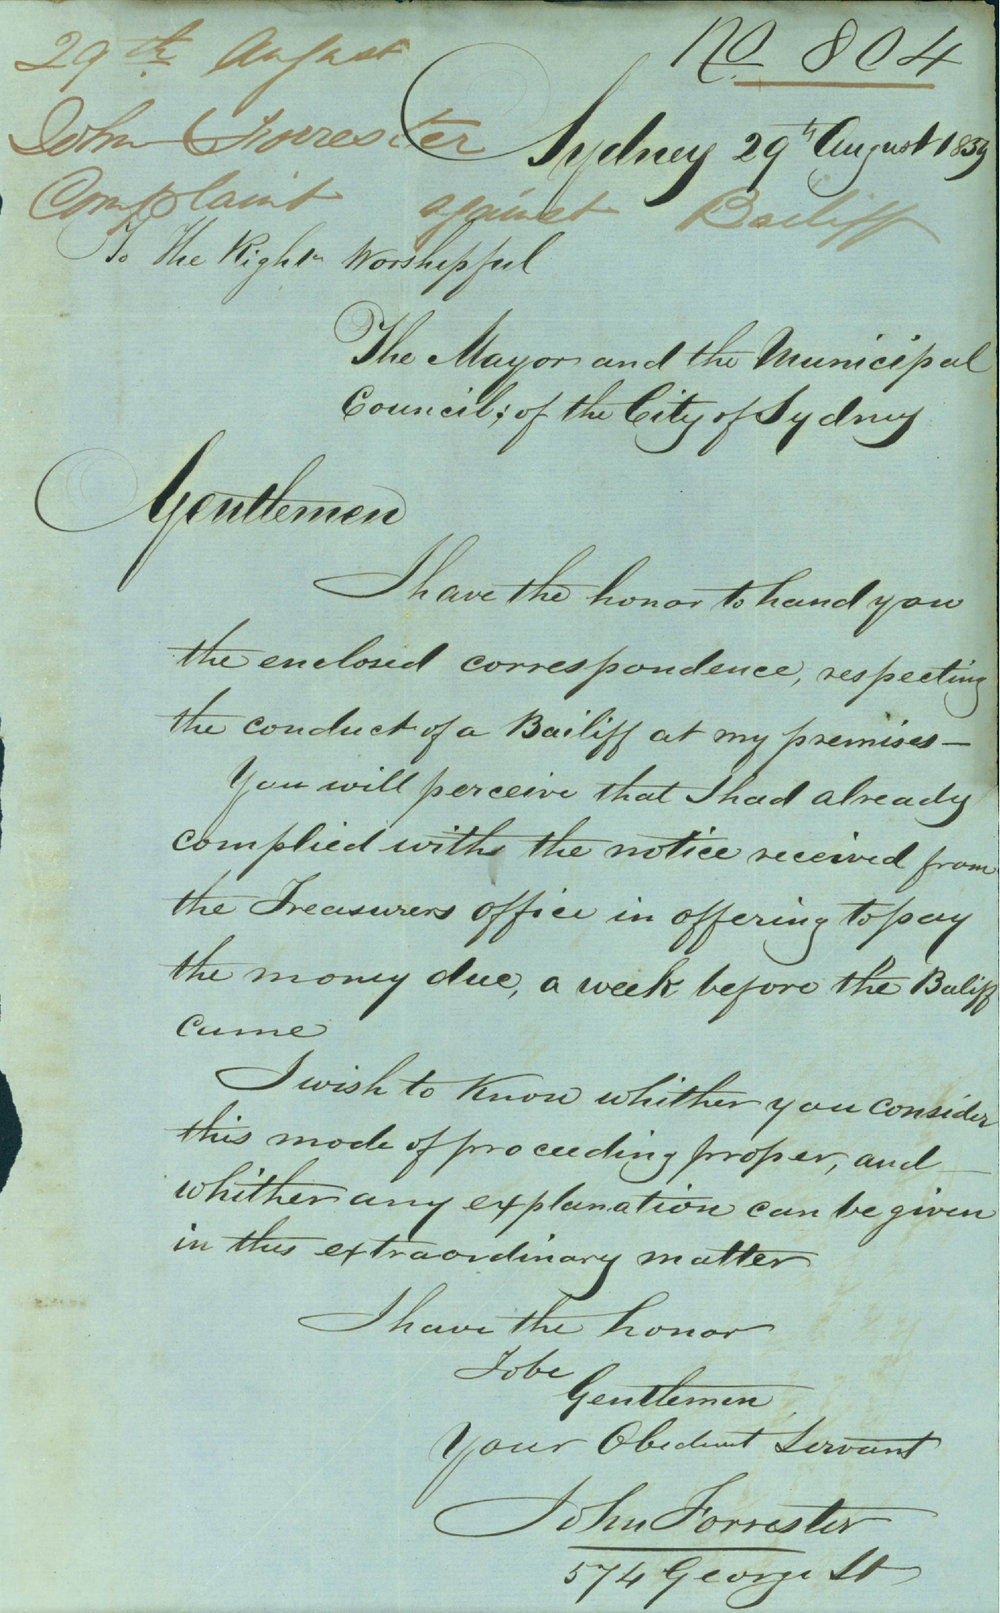 29th August
No 804
John Forrester
Sydney 29th August 1859
Complaint against Bailiff
To The Right Worshipful
The Mayor and the Municipal
Council; of the City of Sydney
Gentlemen
I have the honor to hand you
the enclosed correspondence, respecting
the conduct of a Bailiff at my premises—
You will perceive that I had already
complied with the notice received from
the Treasurers office in offering to pay
the money due, a week before the Bailiff
came
I wish to know whither you consider
this mode of proceeding proper, and
whither any explanation can be given
in this extraordinary matter
I have the honor
To be
Gentlemen
Your Obedient Servant
John Forrester
574 George St